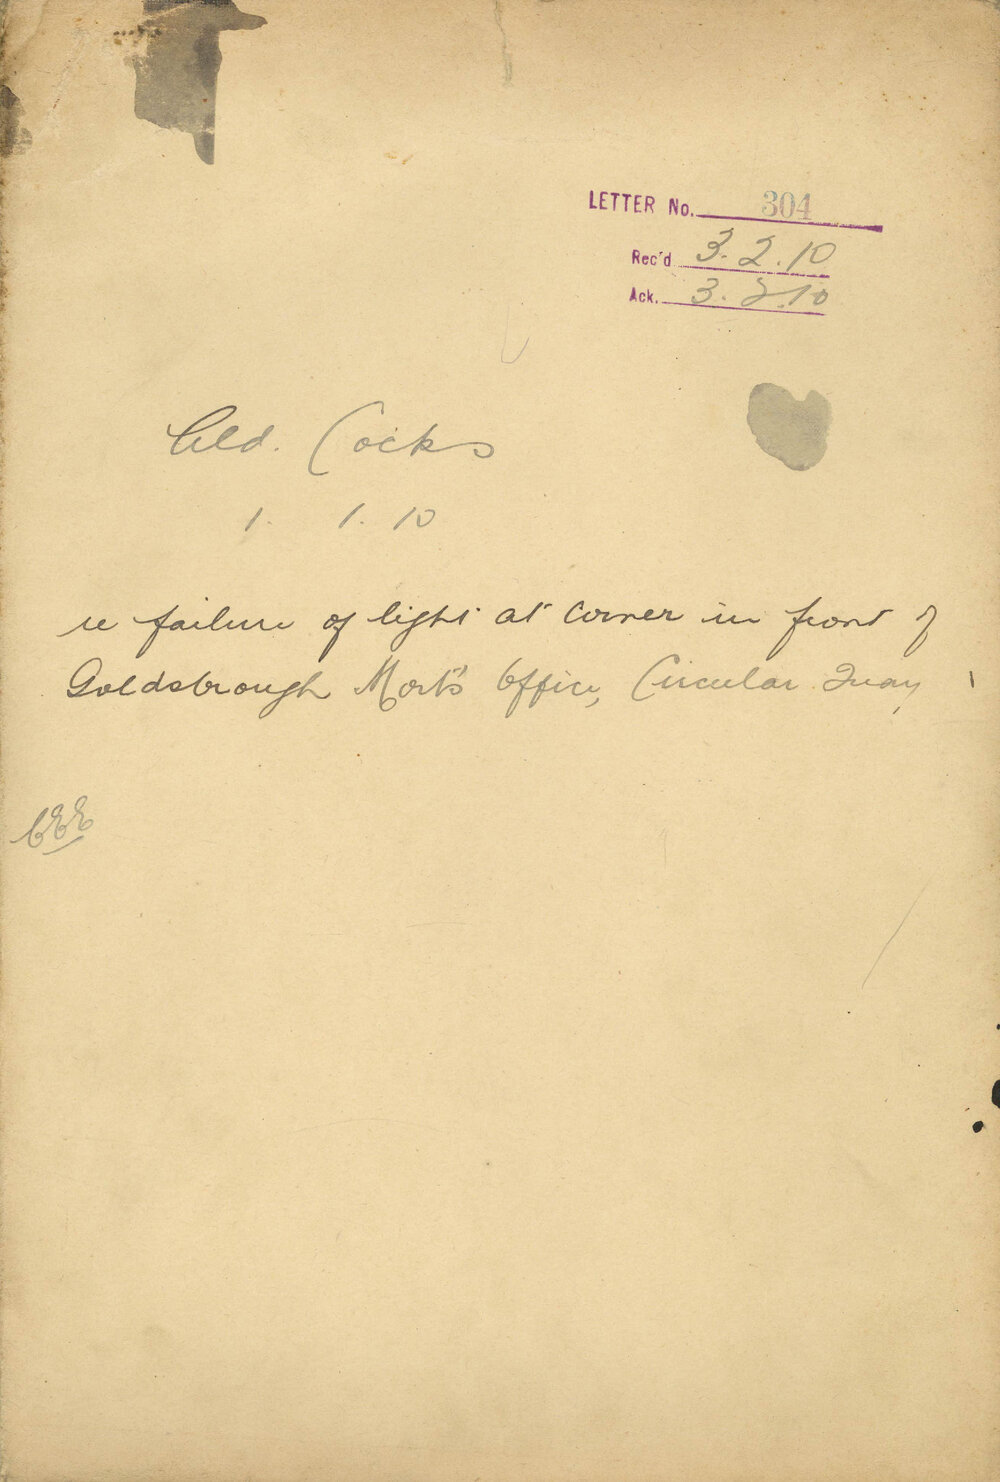 LETTER No. 304
Rec'd 3.2.10
Ack. 3.2.10
Ald. Cocks
1. 1. 10
re failure of light at corner in front of
Goldsbrough Mort's Office, Circular Quay